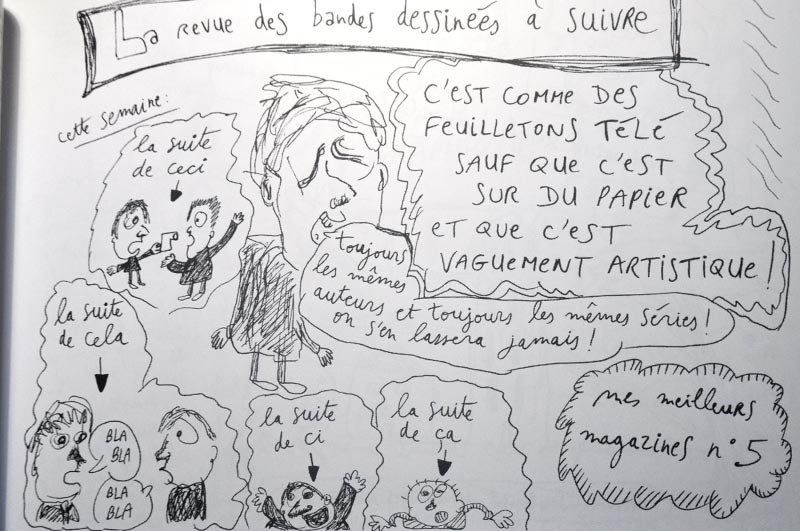 La revue des bandes dessinéés à suivre
cette semaine:
la suite
de ceci
C'EST COMME DES
FEUILLETONS TÉLÉ
SAUF QUE C'EST
SUR DU PAPIER
ET QUE C'EST
VAGUEMENT ARTISTIQUE !
toujours
les mêmes
auteurs et toujours les mêmes séries !
on s'en lassera jamais !
la suite
de cela
BLA
BLA
BLA
BLA
la suite
de ci
la suite
de ça
mes meilleurs
magazines n°5